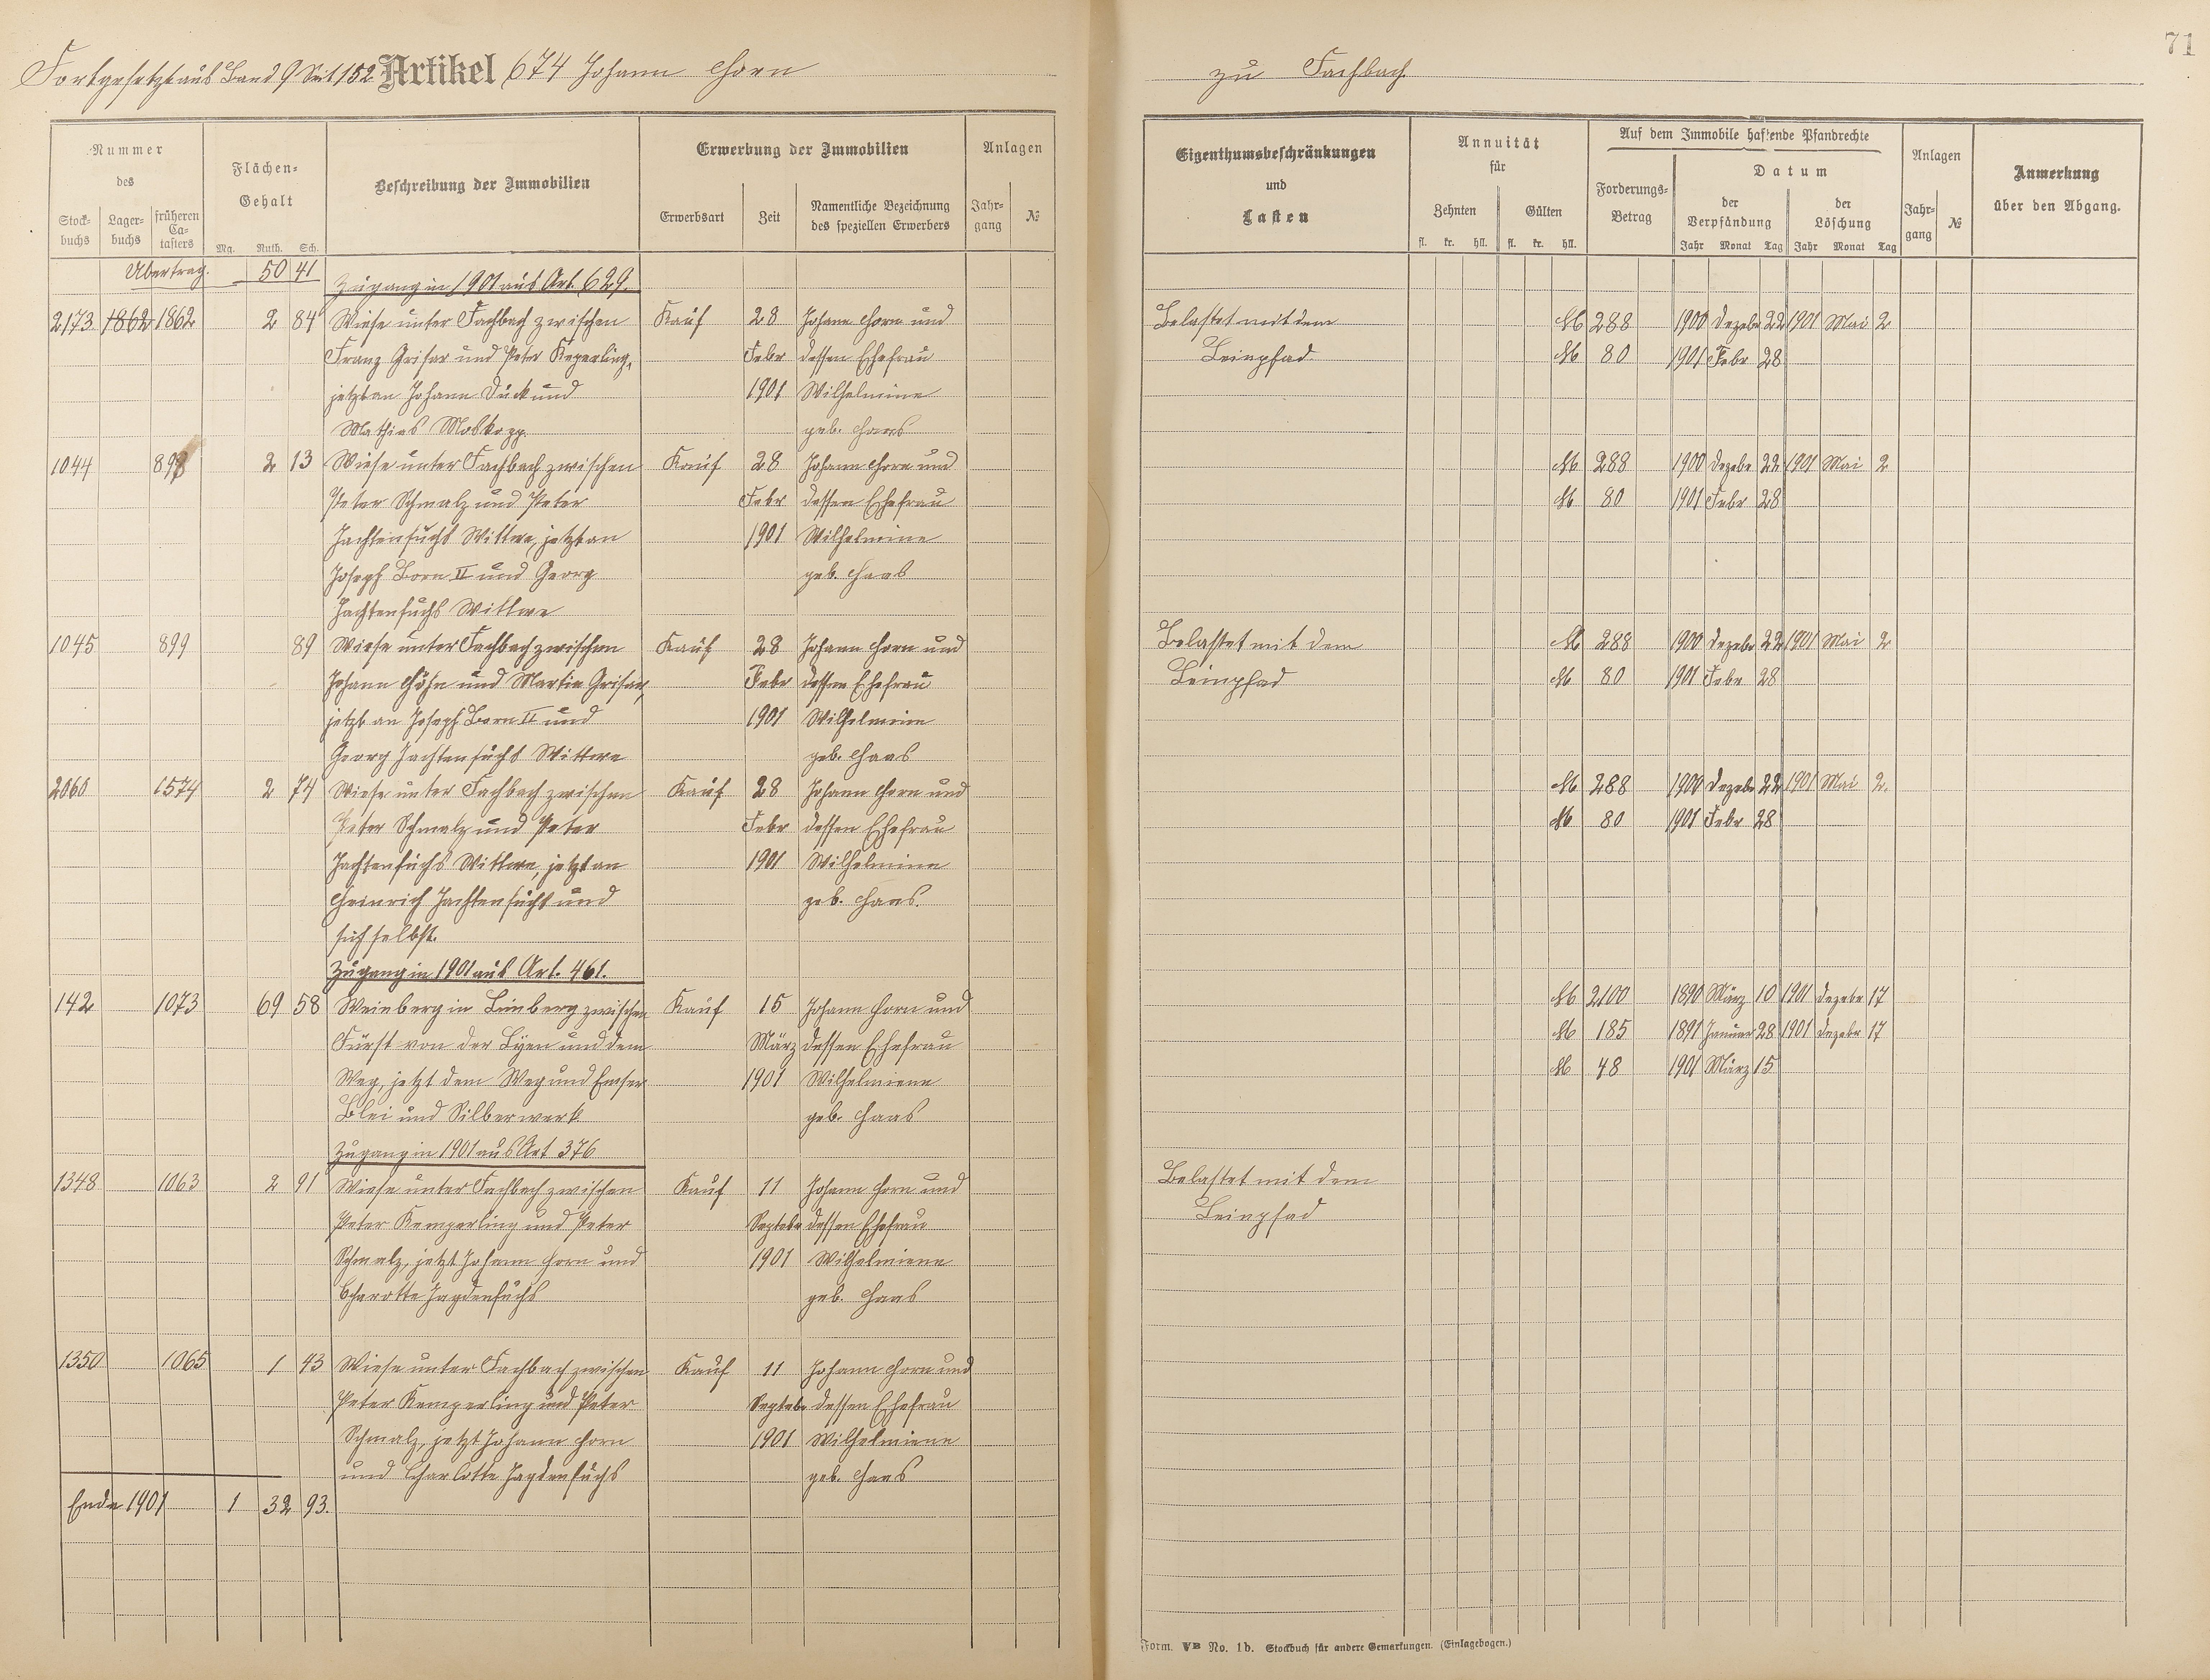 71
Fortgesetzt aus Band 9 Seit 152 Artikel 674 Johann Horn
zu Fachbach
Nummer des
Stockbuchs Lagerbuchs früheren Catasters
Flächen-Gehalt
Mg. Ruth. Sch.
Beschreibung der Immobilien
Erwerbung der Immobilien
Erwerbsart Zeit Namentliche Bezeichnung des speziellen Erwerbers
Anlagen
Jahrgang №
Eigenthumsbeschränkungen und Lasten
Annuität für
Zehnten Gülten
fl. kr. hll. fl. kr. hll.
Auf dem Immobile haftende Pfandrechte
Forderungs-Betrag
Datum
der Verpfändung der Löschung
Jahr Monat Tag Jahr Monat Tag
Anlagen
Jahrgang №
Anmerkung über den Abgang.
Übertrag. 50 41
Zugang in 1901 aus Art. 629.
2173 1862 1862 2 84 Wiese unter Fachbach zwischen Kauf 28 Johann Horn und Belastet mit dem M 288 1900 Dezebr 22 1901 Mai 2
Franz Grisar und Peter Keperling, Febr dessen Ehefrau Leinpfad M 80 1901 Febr 28
jetzt an Johann Dück und 1901 Wilhelmine
Mathias Moskopp geb. Haas
1044 898 2 13 Wiese unter Fachbach zwischen Kauf 28 Johann Horn und M 288 1900 Dezebr 22 1901 Mai 2
Peter Schmalz und Peter Febr dessen Ehefrau M 80 1901 Febr 28
Jachtenfuchs Wittwe, jetzt an 1901 Wilhelmine
Joseph Born II und Georg geb. Haas
Jachtenfuchs Wittwe
1045 899 89 Wiese unter Fachbach zwischen Kauf 28 Johann Horn und Belastet mit dem M 288 1900 Dezebr 22 1901 Mai 2
Johann Höhn und Martin Grisar, Febr dessen Ehefrau Leinpfad M 80 1901 Febr 28
jetzt an Joseph Born II und 1901 Wilhelmine
Georg Jachtenfuchs Wittwe geb. Haas
2060 1574 2 74 Wiese unter Fachbach zwischen Kauf 28 Johann Horn und M 288 1900 Dezebr 22 1901 Mai 2.
Peter Schmalz und Peter Febr dessen Ehefrau M 80 1901 Febr 28
Jachtenfuchs Wittwe, jetzt an 1901 Wilhelmine
Heinrich Jachtenfuchs und geb. Haas.
sich selbst.
Zugang in 1901 aus Art. 461.
142 1073 69 58 Weinberg in Limberg zwischen Kauf 15 Johann Horn und M 2100 1890 März 10 1901 Dezebr 17
Fürst von der Lÿen und dem März dessen Ehefrau M 185 1891 Januar 28 1901 Dezebr 17
Weg, jetzt dem Weg und Emser 1901 Wilhelmiene M 48 1901 März 15
Blei und Silberwerk geb. Haas
Zugang in 1901 aus Art 376
1348 1063 2 91 Wiese unter Fachbach zwischen Kauf 11 Johann Horn und Belastet mit dem
Peter Kemperling und Peter Septebr dessen Ehefrau Leinpfad
Schmalz, jetzt Johann Horn und 1901 Wilhelmiene
Charotte Jagdenfuchs geb. Haas
1350 1065 1 43 Wiese unter Fachbach zwischen Kauf 11 Johann Horn und
Peter Kemperling und Peter Septebr dessen Ehefrau
Schmalz, jetzt Johann Horn 1901 Wilhelmiene
und Charlotte Jagdenfuchs geb. Haas
Ende 1901 1 32 93.
Form. VB No. 1b. Stockbuch für andere Gemarkungen. (Einlagebogen.)